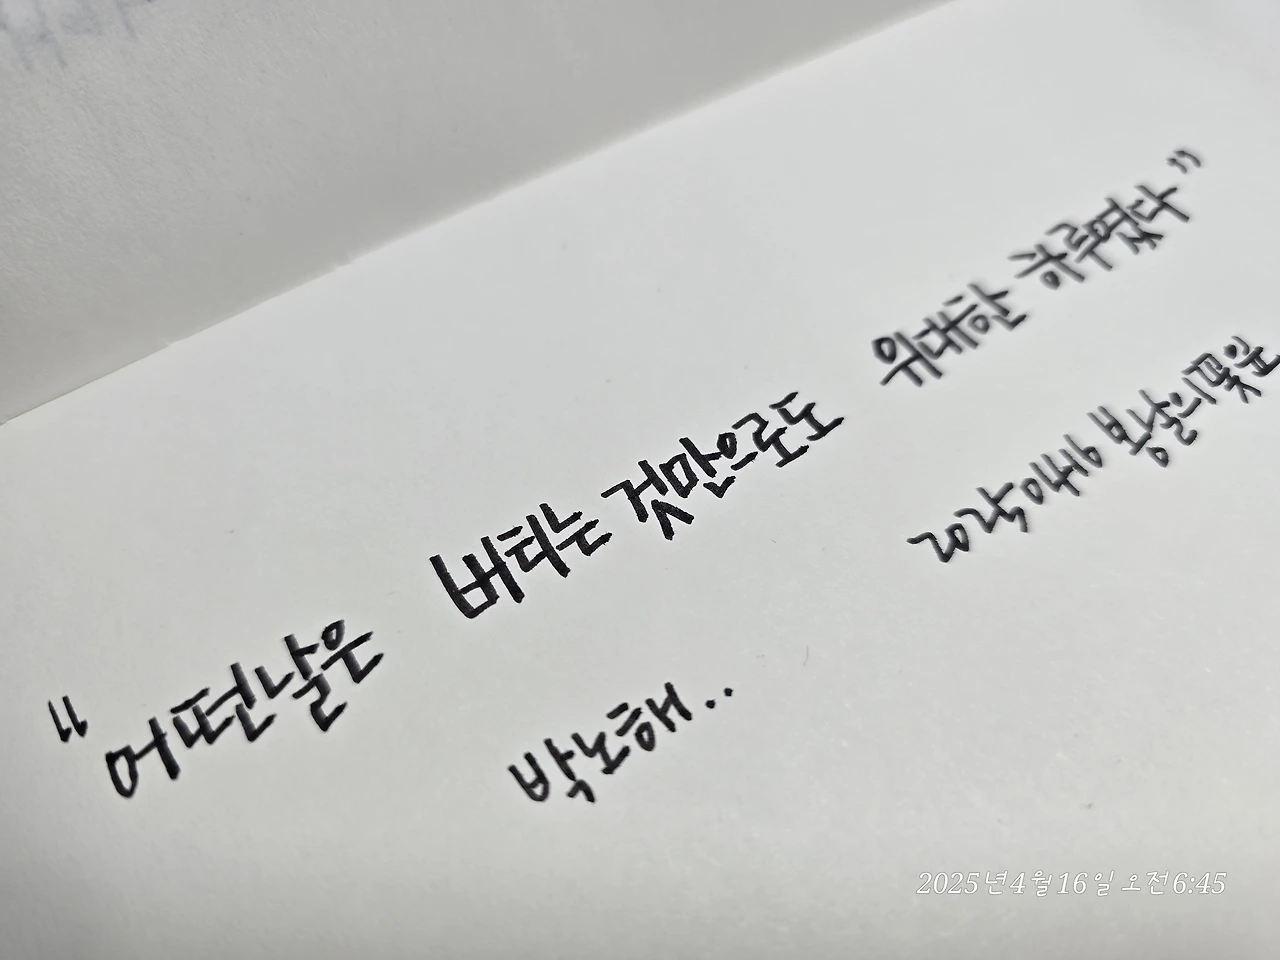 "어떤날은 버티는 것만으로도 위대한 하루였다"
박노해..
봄날의꽃은
2025년4월16일 오전6:45